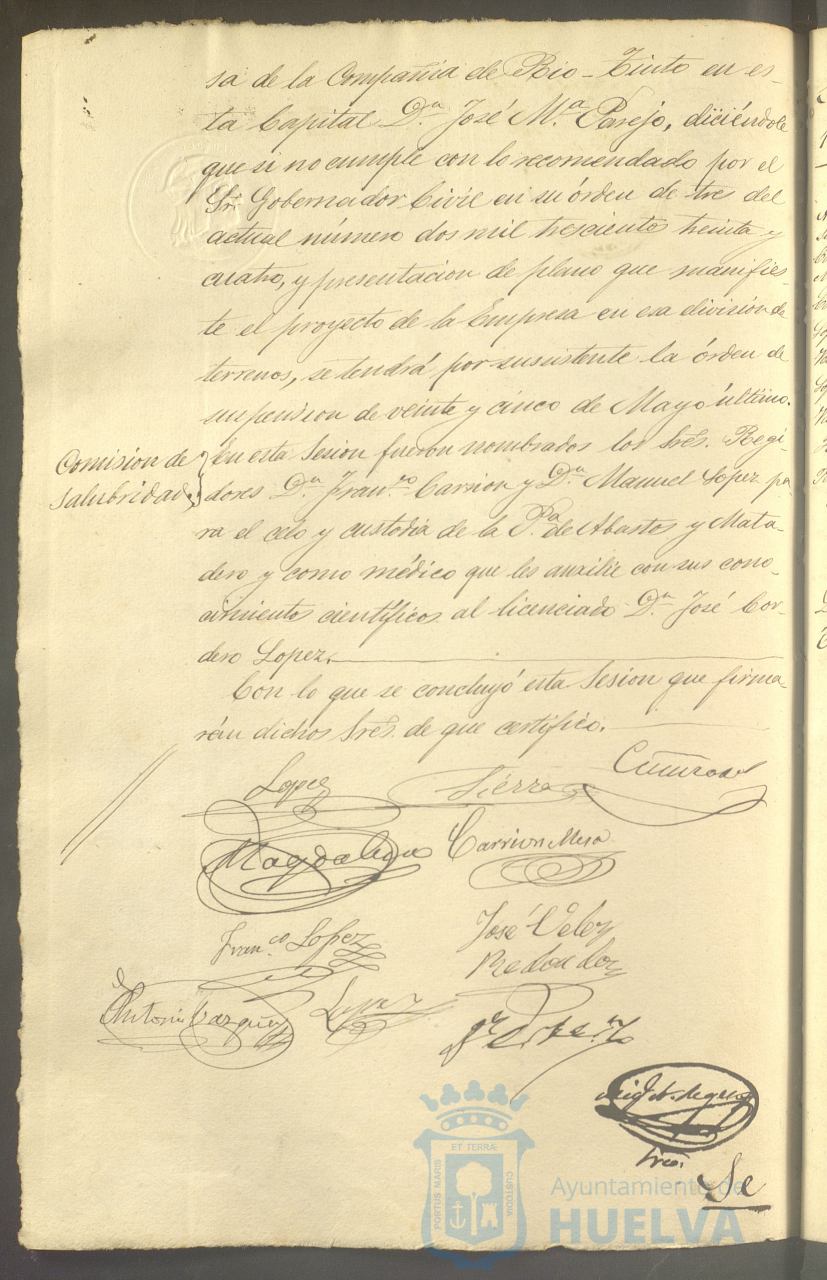 sa de la Compañia de Rio-Tinto en es-
ta Capital D.n José M.a Parejo, diciéndole
que si no cumple con lo recomendado por el
Sr. Gobernador Civil en su órden de tres del
actual número dos mil trescientos treinta y
cuatro, y presentacion de plano que manifies-
te el proyecto de la Empresa en esa division de
terrenos, se tendrá por susistente la órden de
suspension de veinte y cinco de Mayo último.
Comision de
Salubridad
En esta Sesion fueron nombrados los Sres. Regi-
dores D.n Fran.co Carrion y D.n Manuel Lopez pa-
ra el celo y custodia de la P.a de Abastos y Mata-
dero y como médico que les auxilie con sus cono-
cimientos científicos al licenciado D.n José Cor-
dero Lopez.
Con lo que se concluyó esta Sesion que firma-
rán dichos Sres. de que certifico.
Lopez Sierra
Magdaleno Carrion Mesa
Fran.co Lopez José Velez
Redondo
Antonio Vazquez Lopez
Srio.
Se
ET TERRÆ
PORTUS MARIS
CUSTODIA
Ayuntamiento de
HUELVA